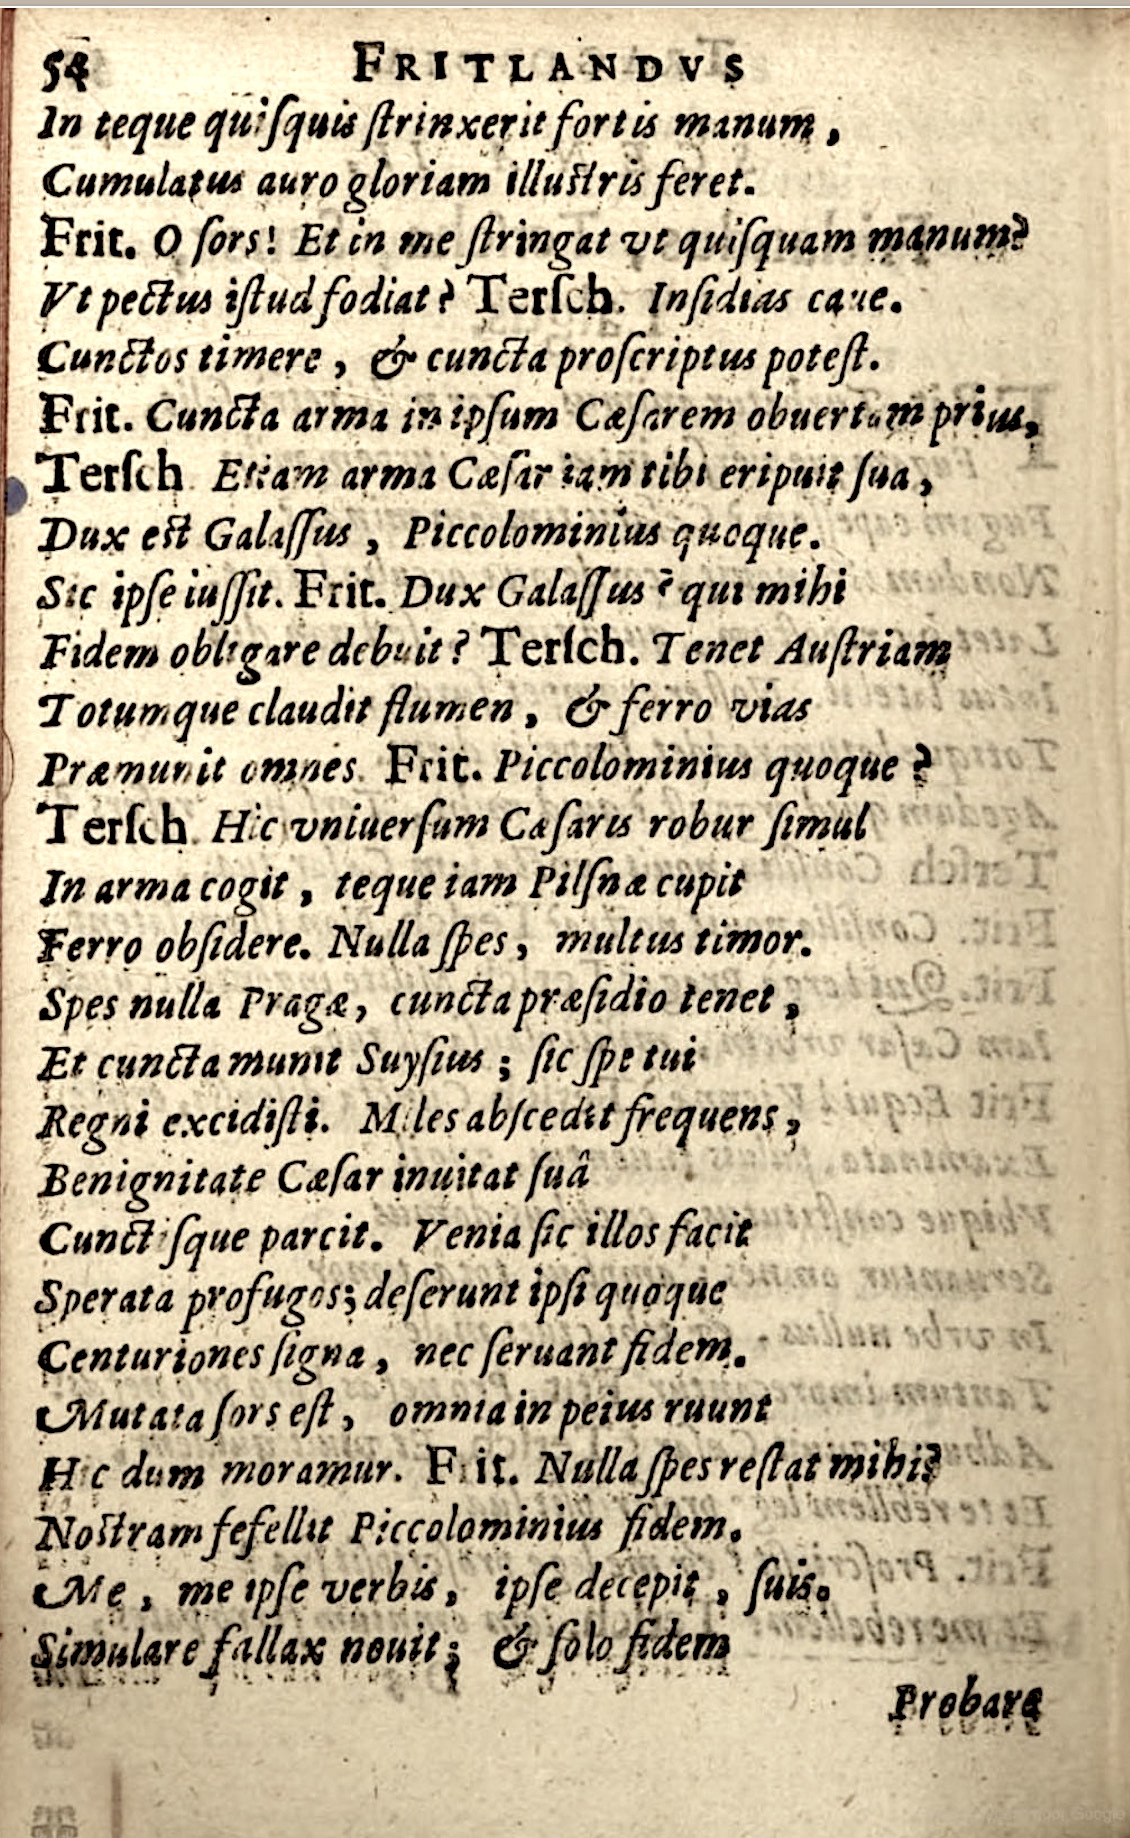 54 FRITLANDVS
In teque quiſquis ſtrinxerit fortis manum,
Cumulatus auro gloriam illuſtris feret.
Frit. O ſors! Et in me ſtringat vt quiſquam manum?
Vt pectus iſtud fodiat? Terſch. Inſidias caue.
Cunctos timere, & cuncta proſcriptus poteſt.
Frit. Cuncta arma in ipſum Cæſarem obuertam prius,
Terſch Etiam arma Cæſar iam tibi eripuit ſua,
Dux eſt Galaſſus, Piccolominius quoque.
Sic ipſe iuſſit. Frit. Dux Galaſſus? qui mihi
Fidem obligare debuit? Terſch. Tenet Auſtriam
Totumque claudit flumen, & ferro vias
Præmunit omnes. Frit. Piccolominius quoque?
Terſch Hic vniuerſum Cæſaris robur ſimul
In arma cogit, teque iam Pilſnæ cupit
Ferro obſidere. Nulla ſpes, multus timor.
Spes nulla Pragæ, cuncta præſidio tenet,
Et cuncta munit Suyſius; ſic ſpe tui
Regni excidiſti. Miles abſcedit frequens,
Benignitate Cæſar inuitat ſuâ
Cunctiſque parcit. Venia ſic illos facit
Sperata profugos; deſerunt ipſi quoque
Centuriones ſigna, nec ſeruant fidem.
Mutata ſors eſt, omnia in peius ruunt
Hic dum moramur. Frit. Nulla ſpes reſtat mihi?
Noſtram fefellit Piccolominius fidem.
Me, me ipſe verbis, ipſe decepit, ſuis.
Simulare fallax nouit; & ſolo fidem
Probare